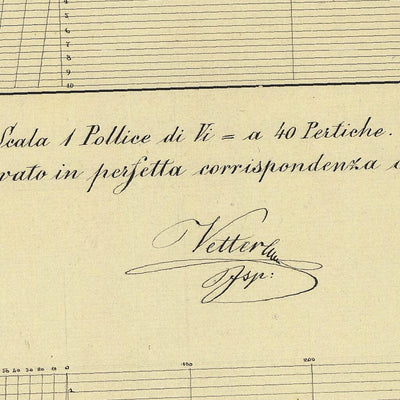 4
5
6
7
8
9
10
Scala 1 Pollice di Vi = a 40 Pertiche.
vato in perfetta corrispondenza
Vetter
Isp:
50 40 30 20 10 0 100 200
1
2